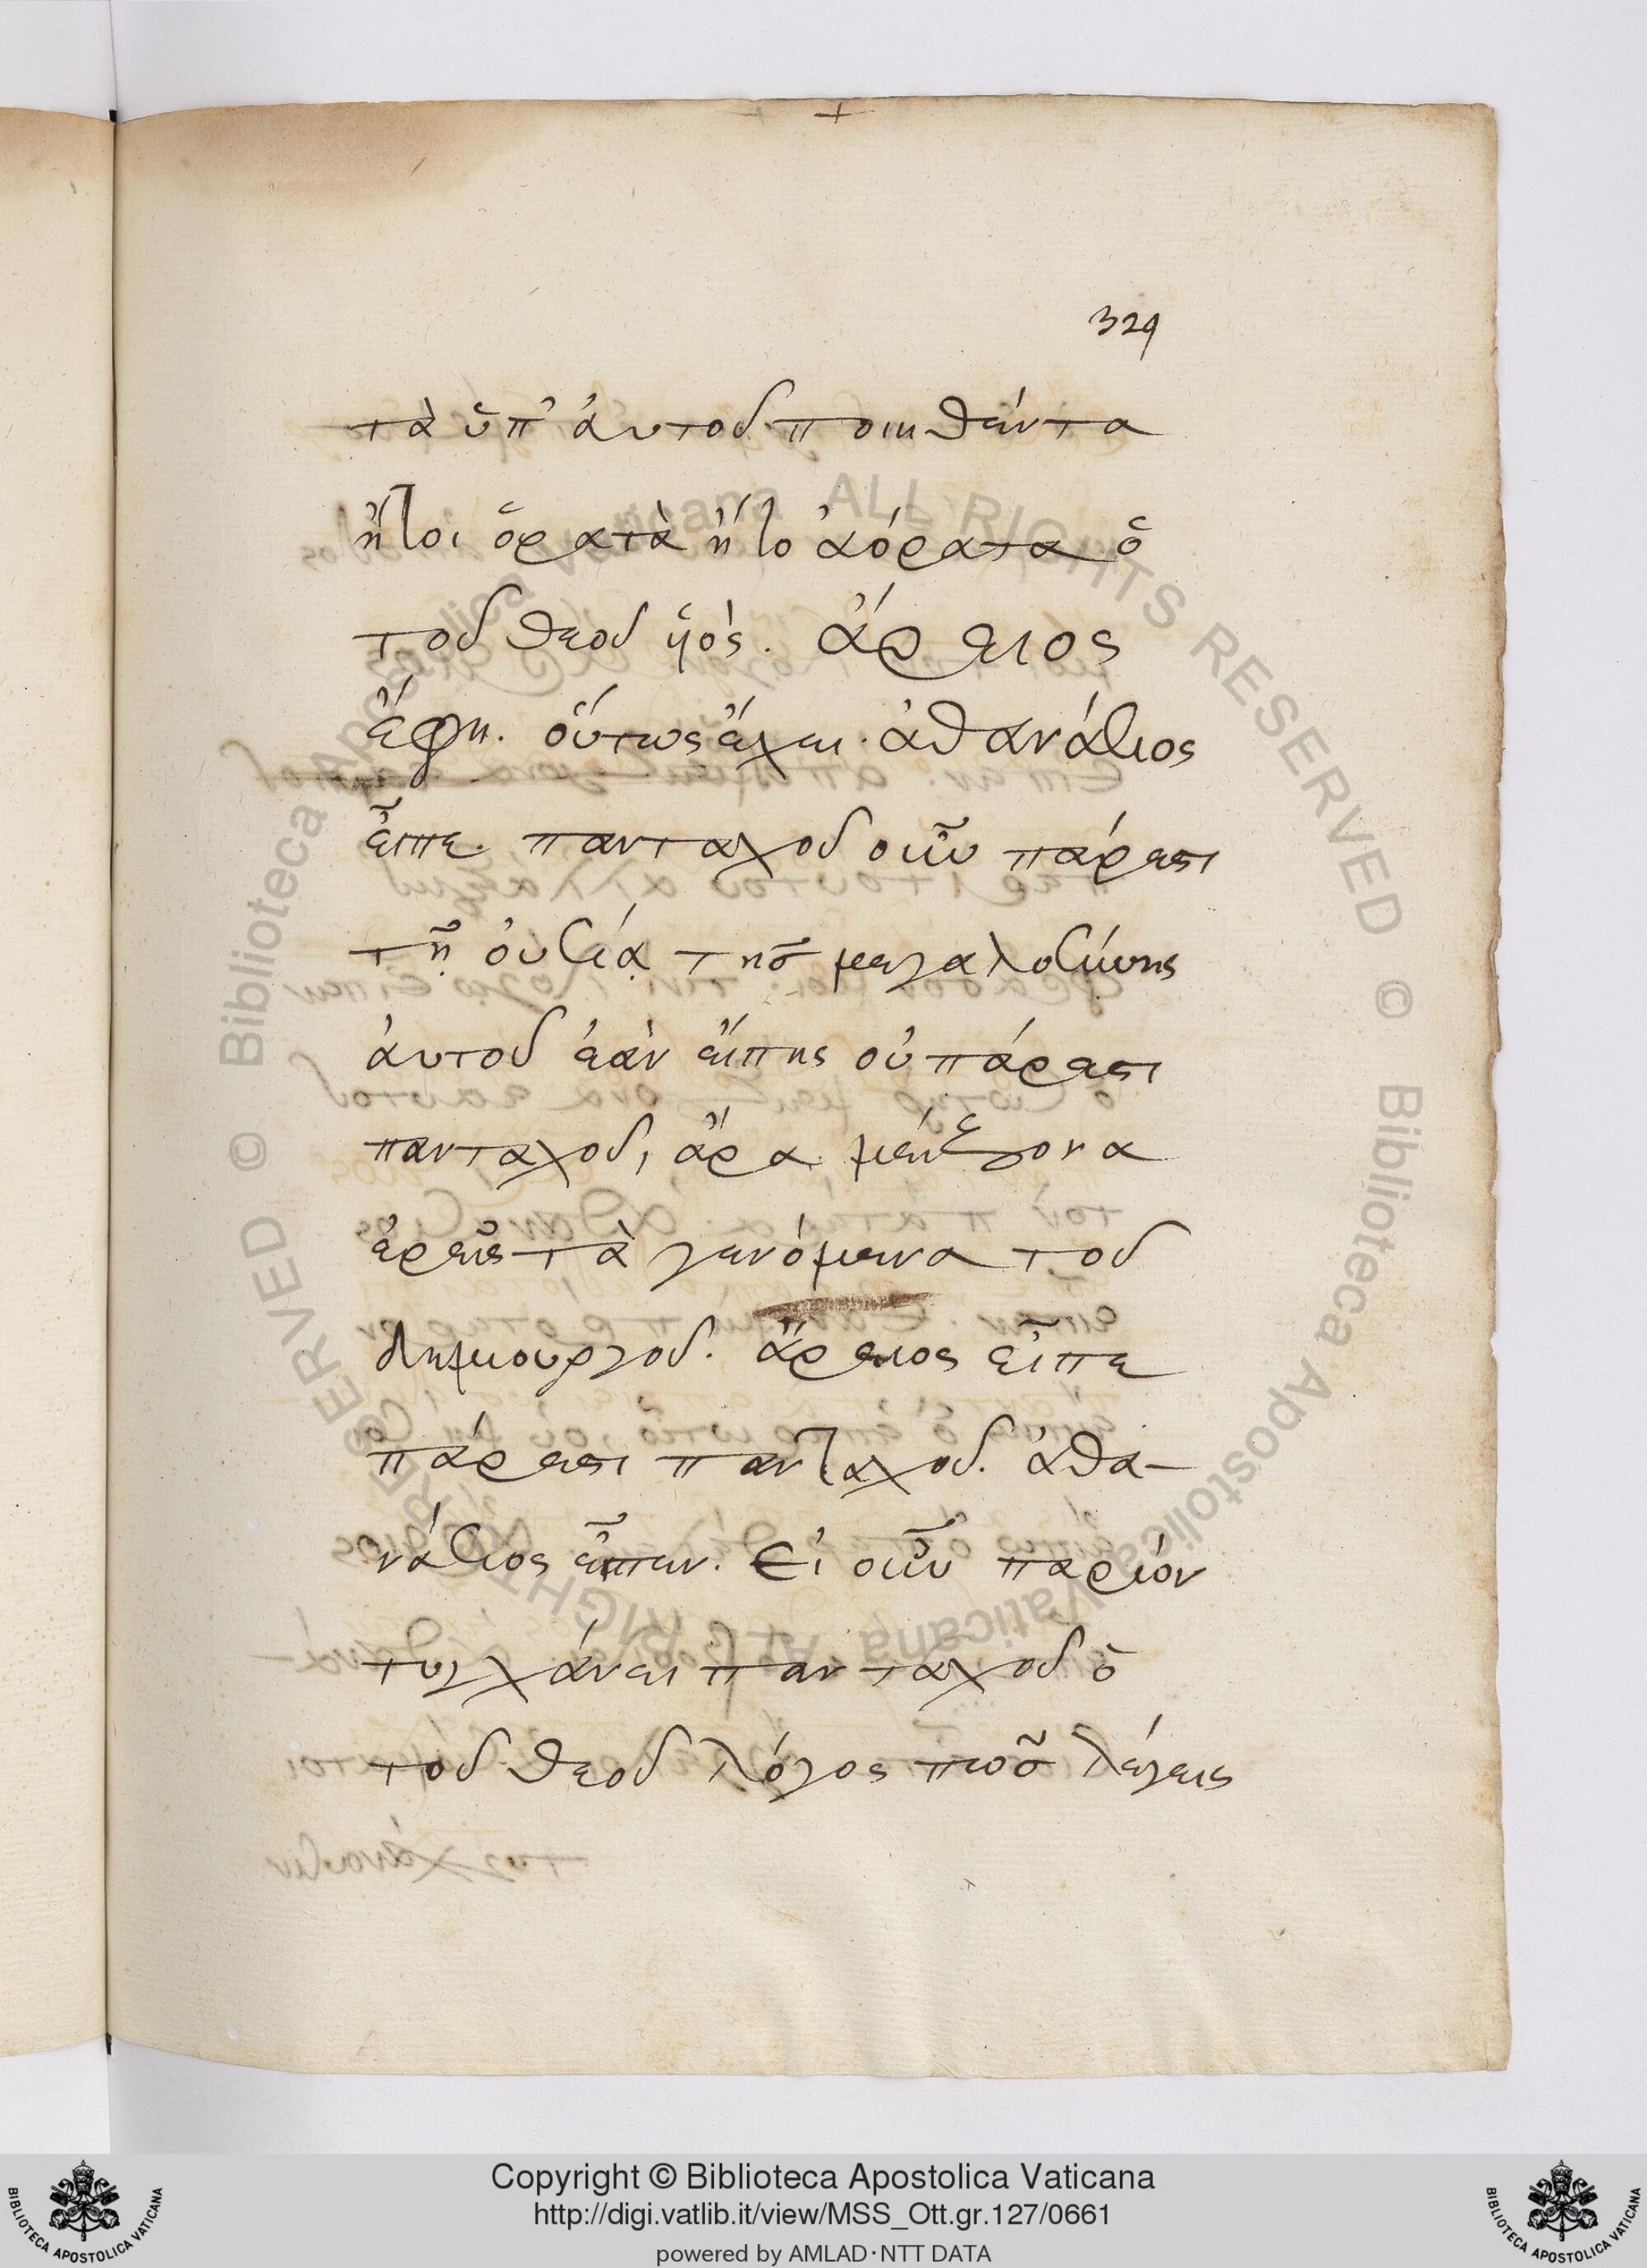 329
τὰ ὑπ' ἀυτοῦ ποιηθέντα
ἤτοι ὁρατὰ ἤτοι ἀόρατα ὁ
τοῦ θεοῦ υἱὸς. ἄρειος
ἔφη. οὕτως ἔχει. ἀθανάσιος
εἶπε. πανταχοῦ οὖν πάρεστι
τῇ οὐσίᾳ τῆσ μεγαλοσύνης
ἀυτοῦ ἐὰν εἴπης οὐ πάρεστι
πανταχοῦ, ἄρα μείζονα
ἐρεῖς τὰ γενόμενα τοῦ
δημιουργοῦ. ἄρειος εἶπε
πάρεστι πανταχοῦ. ἀθα-
νάσιος εἶπεν. Εἰ οὖν παριὸν
τυγχάνει πανταχοῦ ὁ
τοῦ θεοῦ λόγος πῶσ λέγεις
© Biblioteca Apostolica Vaticana ALL RIGHTS RESERVED
© Biblioteca Apostolica Vaticana ALL RIGHTS RESERVED
Copyright © Biblioteca Apostolica Vaticana
http://digi.vatlib.it/view/MSS_Ott.gr.127/0661
powered by AMLAD·NTT DATA
BIBLIOTECA APOSTOLICA VATICANA
BIBLIOTECA APOSTOLICA VATICANA